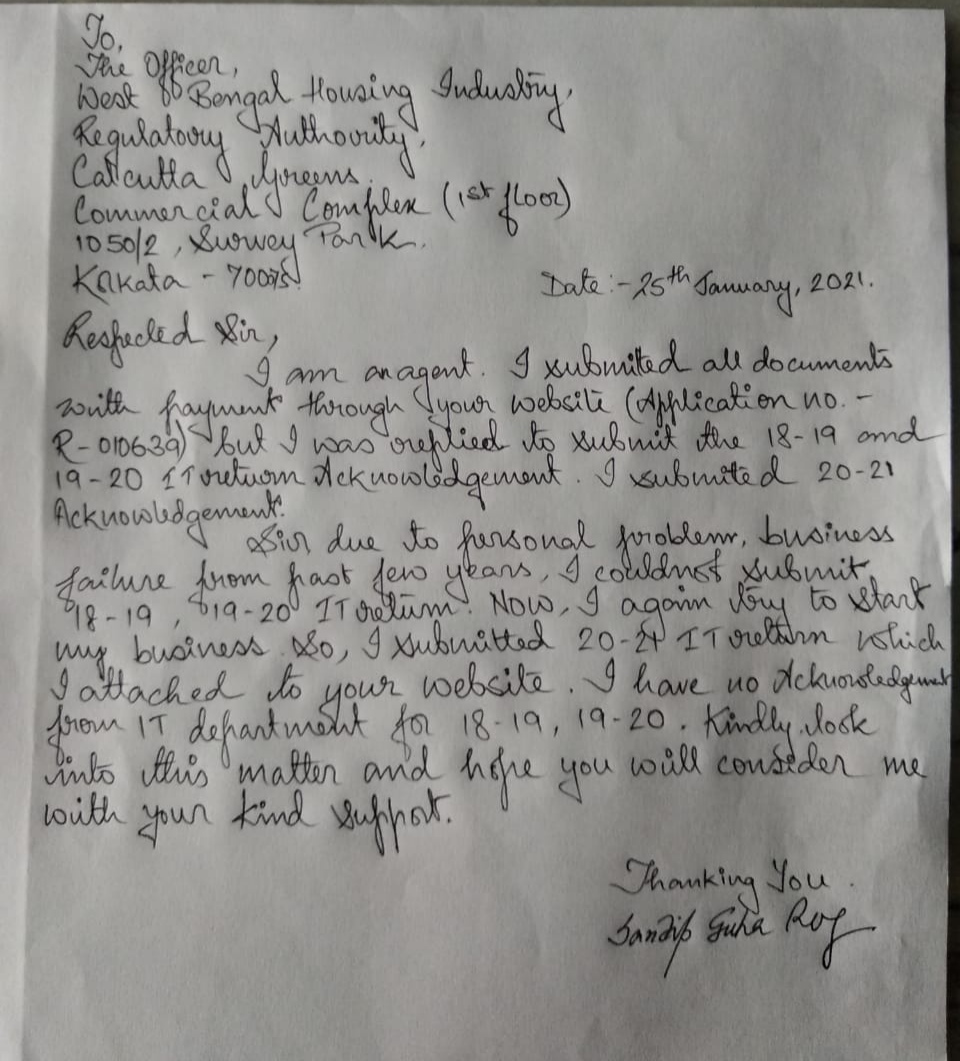 To,
The Officer,
West Bengal Housing Industry,
Regulatory Authority,
Calcutta Greens.
Commercial Complex (1st floor)
1050/2, Survey Park.
Kolkata - 70075.
Date:- 25th January, 2021.
Respected Sir,
I am an agent. I submited all documents
with payment through your website (Application no. -
R-010639) but I was replied to submit the 18-19 and
19-20 IT return Acknowledgement. I submited 20-21
Acknowledgement.
Sir due to personal problem, business
failure from past few years, I couldnot submit
18-19, 19-20 IT return. Now, I again try to start
my business. So, I submitted 20-21 IT return which
I attached to your website. I have no Acknowledgement
from IT department for 18-19, 19-20. Kindly look
into this matter and hope you will consider me
with your kind support.
Thanking You.
Sandip Guha Roy